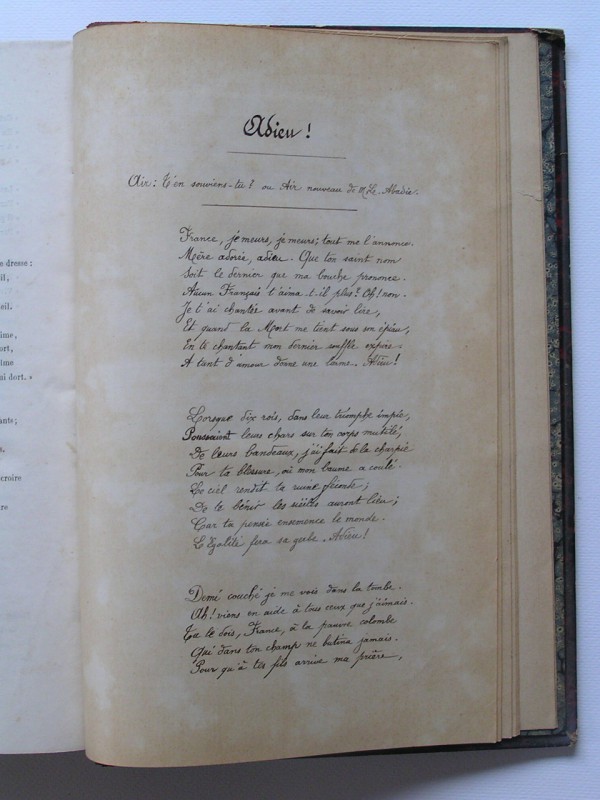 e dresse :
il,
eil.
ime,
ort,
ime
ui dort. »
ante ;
croire
re
Adieu !
Air : T'en souviens-tu ? ou Air nouveau de M. Le Abadie.
France, je meurs, je meurs ; tout me l'annonce.
Mère adorée, adieu. Que ton saint nom
Soit le dernier que ma bouche prononce.
Aucun Français t'aima-t-il plus ? Oh ! non.
Je t'ai chantée avant de savoir lire,
Et quand la Mort me tient sous son épieu,
En te chantant mon dernier souffle expire.
A tant d'amour donne une larme. Adieu !
Lorsque dix rois, dans leur triomphe impie,
Poussaient leurs chars sur ton corps mutilé,
De leurs bandeaux, j'ai fait de la charpie
Pour ta blessure, où mon baume a coulé.
Le ciel rendit ta ruine féconde ;
De te bénir les siècles auront lieu ;
Car ta pensée ensemence le monde.
L'Egalité fera sa gerbe. Adieu !
Demi couché je me vois dans la tombe.
Ah ! viens en aide à tous ceux que j'aimais.
Tu le dois, France, à la pauvre colombe
Qui dans ton champ ne butina jamais.
Pour qu'à tes fils arrive ma prière,